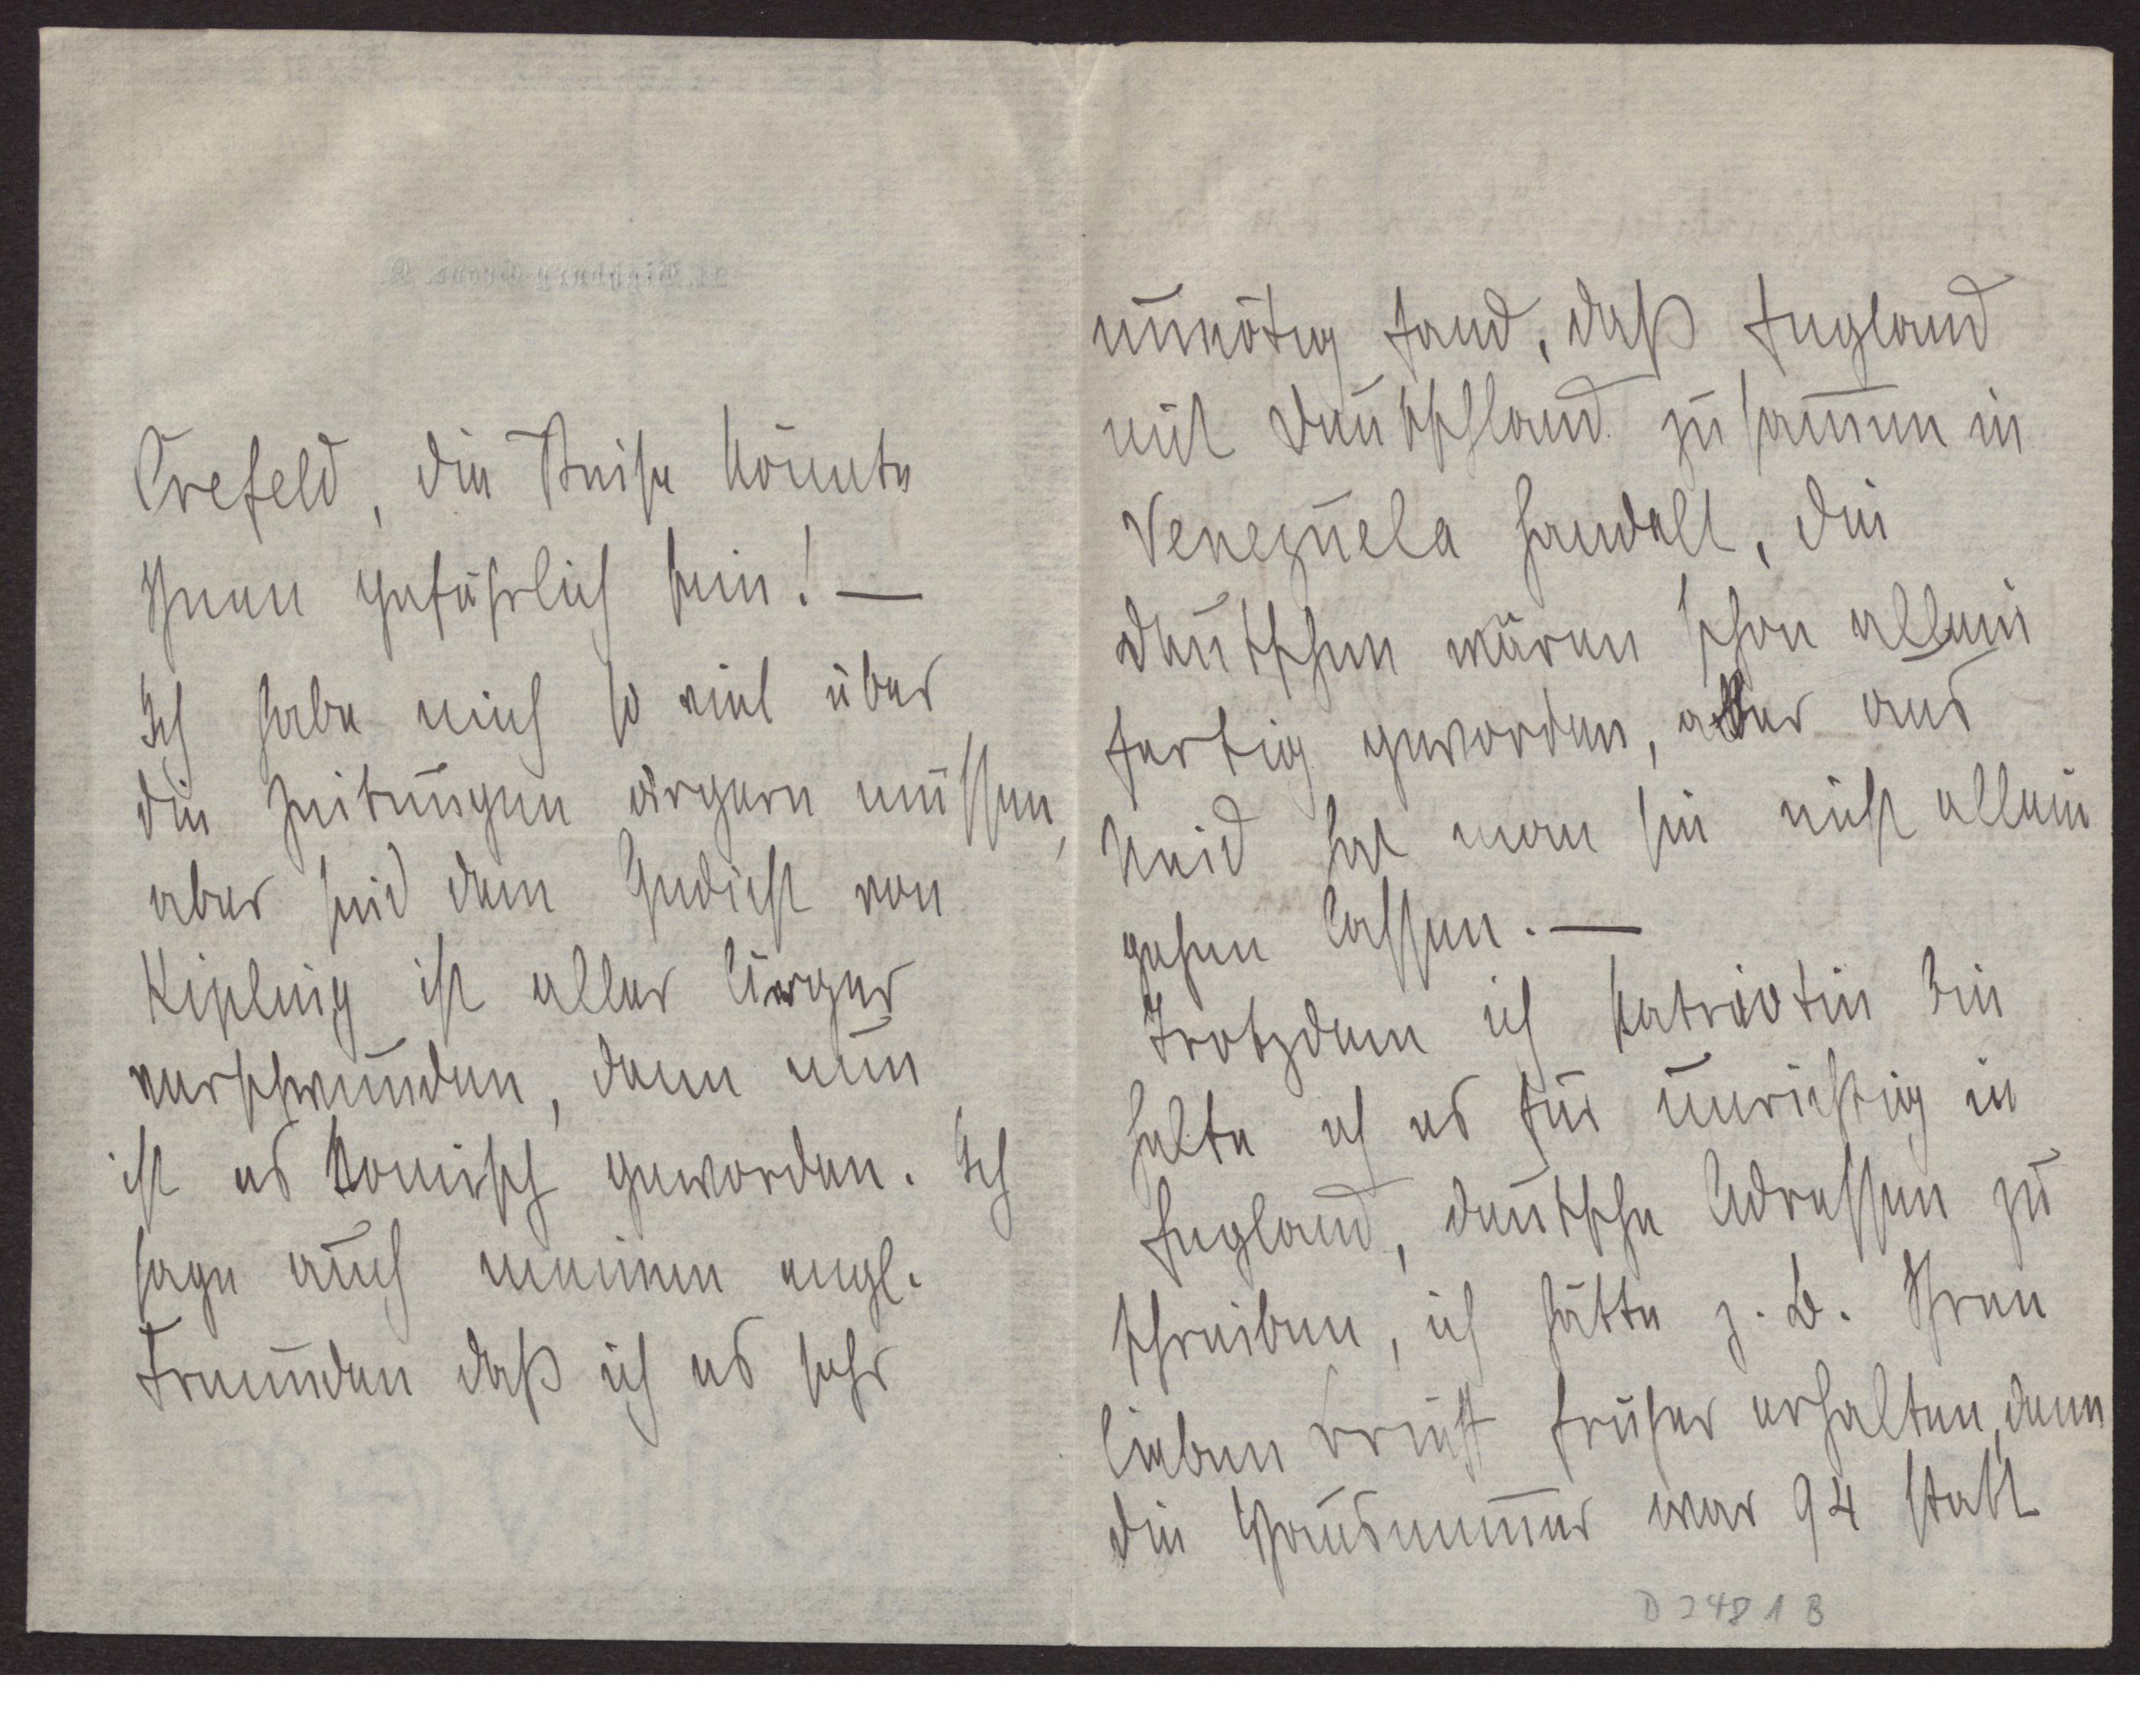 Crefeld, die Reise könnte
Ihnen gefährlich sein! —
Ich habe mich so viel über
die Zeitungen ärgern müssen,
aber seid dem Gedicht von
Kipling ist aller Ärger
verschwunden, denn nun
ist es komisch geworden. Ich
sage auch meinen engl.
Freunden daß ich es sehr
unnötig fand, daß England
mit Deutschland zusammen in
Venezuela handelt, die
Deutschen wären schon allein
fertig geworden, aber aus
Neid hat man sie nicht allein
gehen lassen. —
Trotzdem ich Patriotin bin
halte ich es für unrichtig in
England, deutsche Adressen zu
schreiben, ich hätte z. B. Ihren
lieben Brief früher erhalten, denn
die Hausnummer war 94 statt
D 2481 B